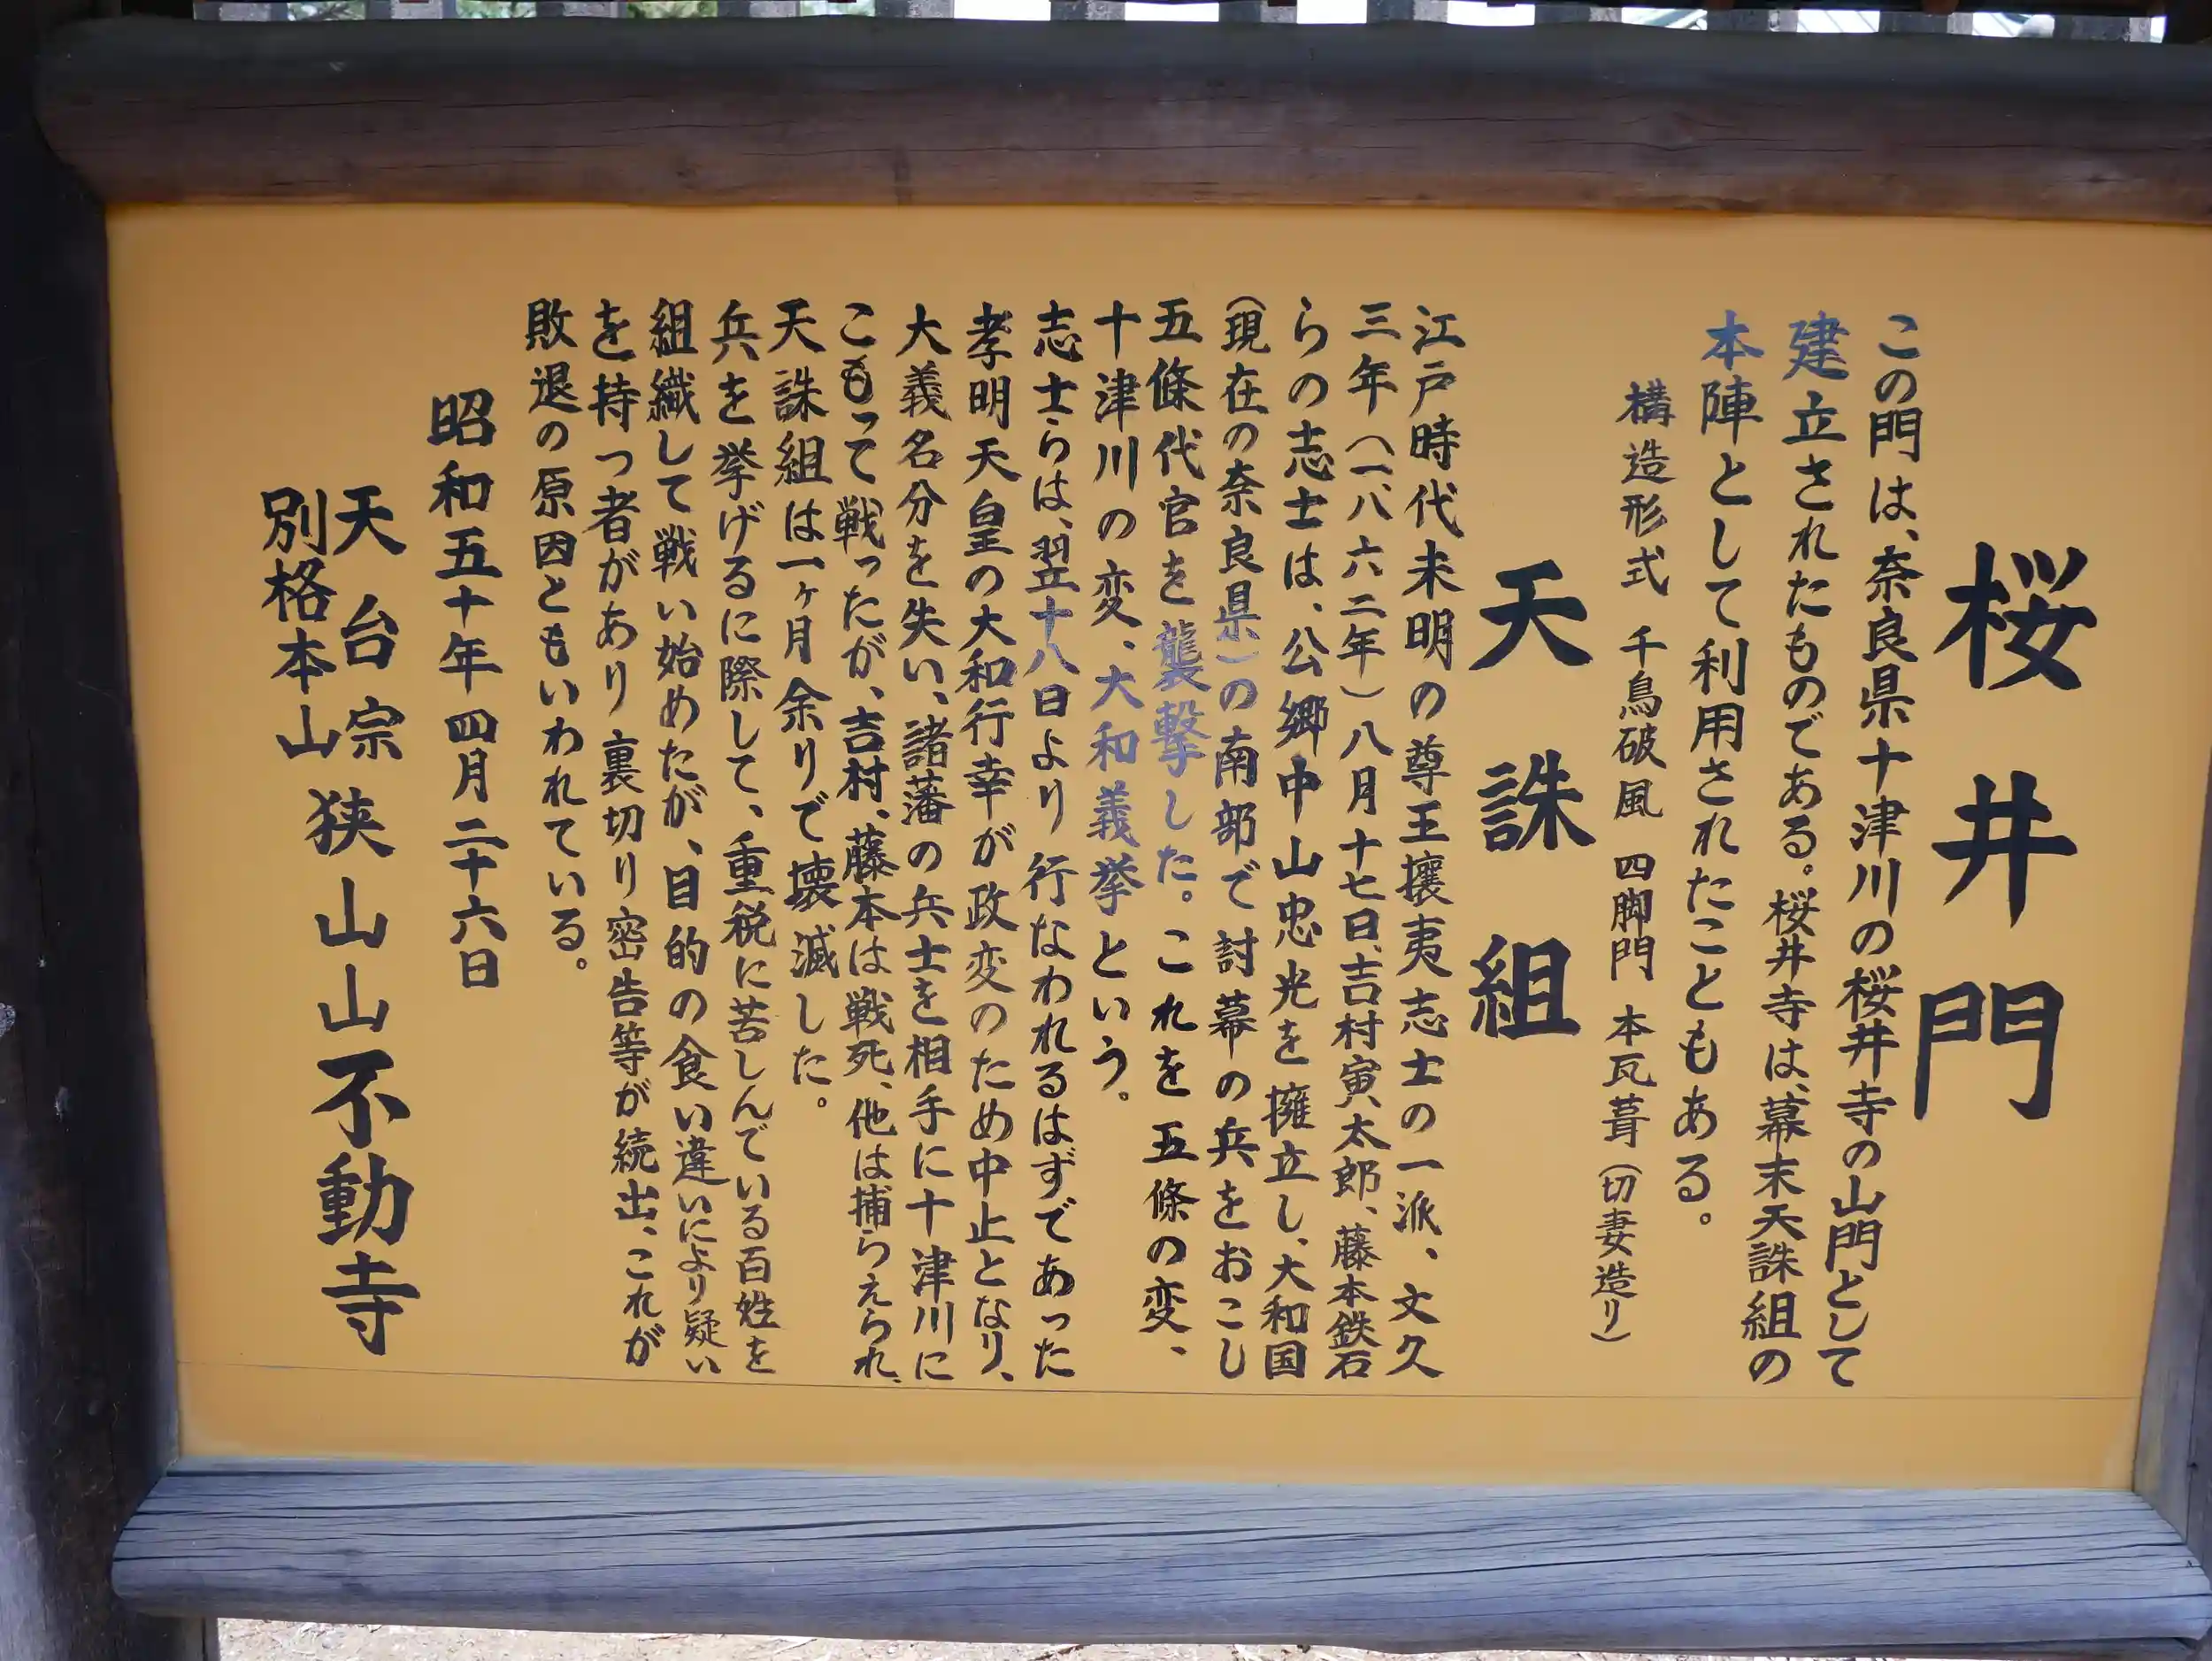 桜井門
この門は、奈良県十津川の桜井寺の山門として
建立されたものである。桜井寺は、幕末天誅組の
本陣として利用されたこともある。
構造形式 千鳥破風 四脚門 本瓦葺（切妻造り）
天誅組
江戸時代末明の尊王攘夷志士の一派、文久
三年（一八六二年）八月十七日、吉村寅太郎、藤本鉄石
らの志士は、公郷中山忠光を擁立し、大和国
（現在の奈良県）の南部で討幕の兵をおこし
五條代官を襲撃した。これを五條の変、
十津川の変、大和義挙という。
志士らは、翌十八日より行なわれるはずであった
孝明天皇の大和行幸が政変のため中止となり、
大義名分を失い、諸藩の兵士を相手に十津川に
こもって戦ったが、吉村、藤本は戦死、他は捕らえられ、
天誅組は一ヶ月余りで壊滅した。
兵を挙げるに際して、重税に苦しんでいる百姓を
組織して戦い始めたが、目的の食い違いにより疑い
を持つ者があり裏切り密告等が続出、これが
敗退の原因ともいわれている。
昭和五十年四月二十六日
天台宗
別格本山
狭山山不動寺